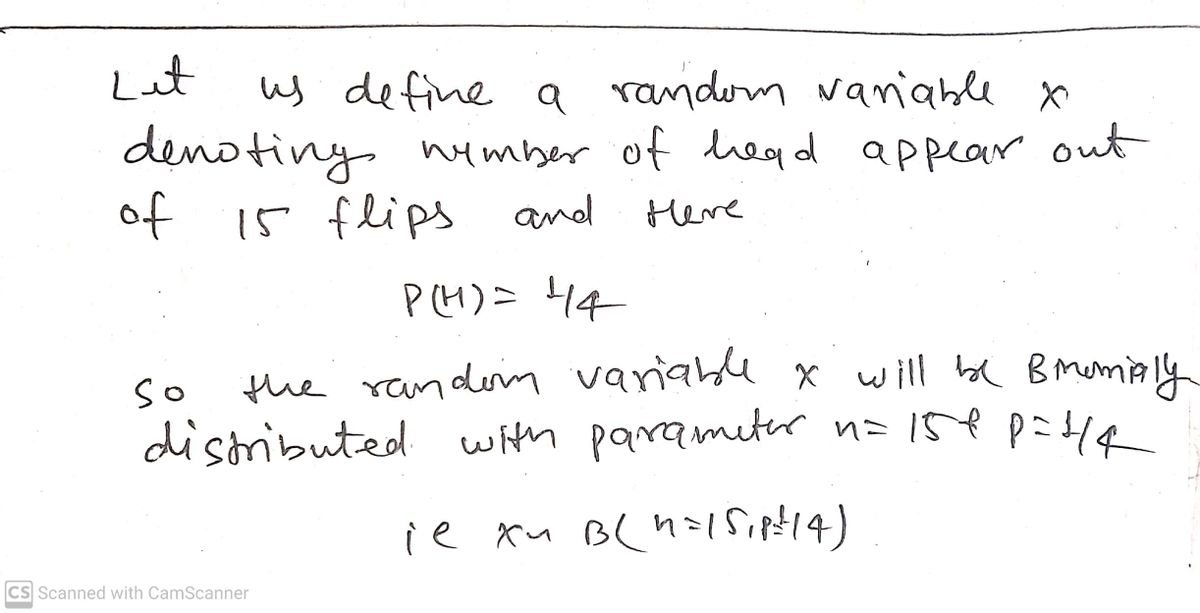 Let us define a random variable x
denoting number of head appear out
of 15 flips and Here
P(H) = 1/4
so the random variable x will be Binomially
distributed with parameter n = 15 & p = 1/4
ie x ~ B( n = 15, p = 1/4)
CS Scanned with CamScanner